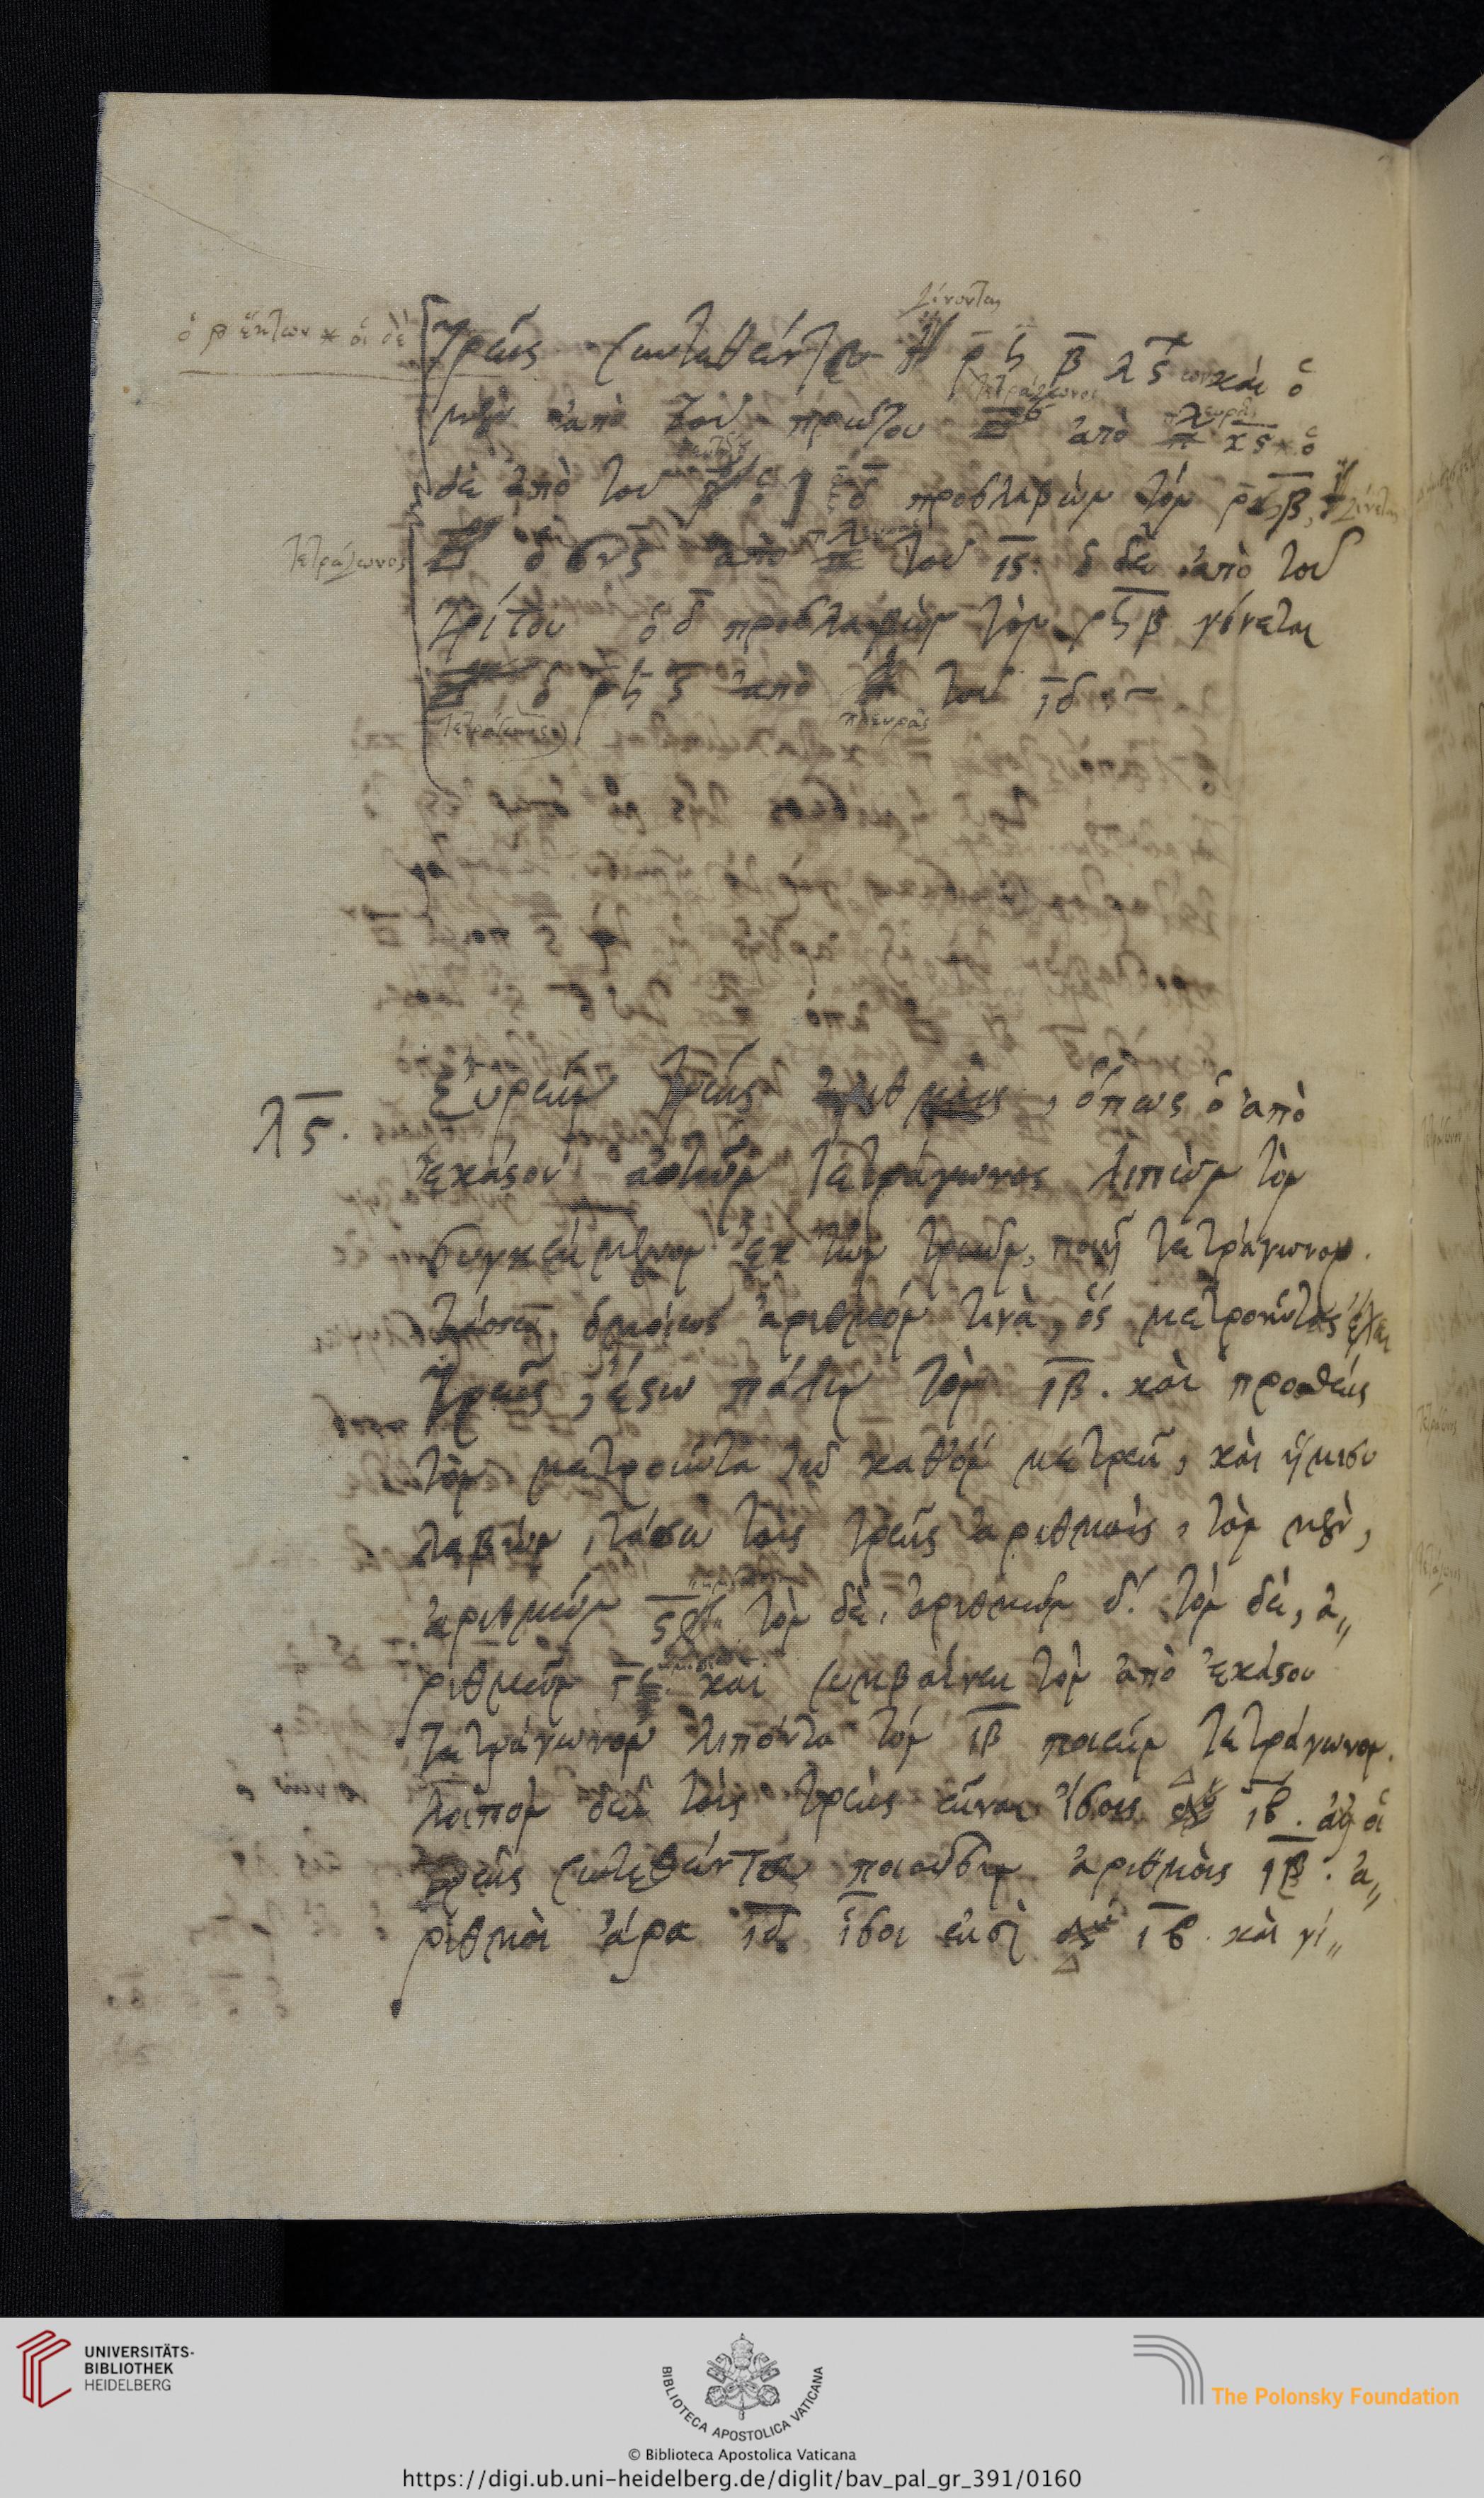 ὁ
τρεῖς συντεθέντες ρϟβ λϛων καὶ ὁ
μὲν ἀπὸ τοῦ πρώτου ἀπὸ κϛ ὁ
δὲ ἀπὸ τοῦ β ὁ ξδ προσλαβὼν τὸν ρϟβ,
τετράγωνος
ὁ σνϛ ἀπὸ τοῦ ιϛ. ὁ δὲ ἀπὸ τοῦ
τρίτου ὁ δ προσλαβὼν τὸν ρϟβ γίνεται
ὁ ρϟϛ ἀπὸ τοῦ ιδ :~
πλευρᾶς
λϛ.
Εὑρεῖν τρεῖς ἀριθμοὺς, ὅπως ὁ ἀπὸ
ἑκάστου αὐτῶν τετράγωνος λιπὼν τὸν
συγκείμενον ἐκ τῶν τριῶν, ποιῇ τετράγωνον.
ὁμοίως ἀριθμόν τινὰ, ὃς μετροῦντας ἕξει
τρεῖς, ἔστω πάλιν τὸν ιβ. καὶ προσθεὶς
τὸν μετροῦντα τῷ καθ' ὃν μετρεῖ, καὶ ἥμισυ
λαβὼν, τάσσω τοὺς τρεῖς ἀριθμοὺς, τὸν μὲν,
ἀριθμῶν ϛ τὸν δὲ, ἀριθμῶν δ. τὸν δὲ, ἀ„
ριθμῶν καὶ συμβαίνει τὸν ἀπὸ ἑκάστου
τετράγωνον λιπόντα τὸν ιβ ποιεῖν τετράγωνον.
λοιπὸν δεῖ τοὺς τρεῖς εἶναι ἴσους Δ ιβ. ἀλλ' οἱ
τρεῖς συντεθέντες ποιοῦσιν ἀριθμοὺς ιβ. ἀ„
ριθμοὶ ἄρα ιδ ἴσοι εἰσὶ Δ ιβ. καὶ γί„
UNIVERSITÄTS-
BIBLIOTHEK
HEIDELBERG
BIBLIOTECA APOSTOLICA VATICANA
The Polonsky Foundation
© Biblioteca Apostolica Vaticana
https://digi.ub.uni-heidelberg.de/diglit/bav_pal_gr_391/0160